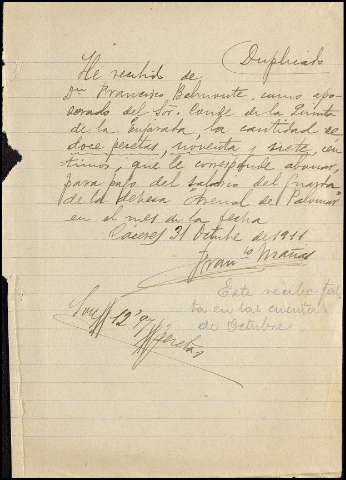 Duplicado
He recibido de
Dn Francisco Belmonte, como apo-
derado del Sr. Conde de la Quinta
de la Enjarada, la cantidad de
doce pesetas, noventa y siete, cén-
timos, que le corresponde abonar
para pago del salario del guarda
de la dehesa Arenal de Palomar
en el mes de la fecha
Caceres 31 Octubre de 1911
Franco Mañas
Este recibo fal-
ta en las cuentas
de Octubre
Son 12'97 pesetas